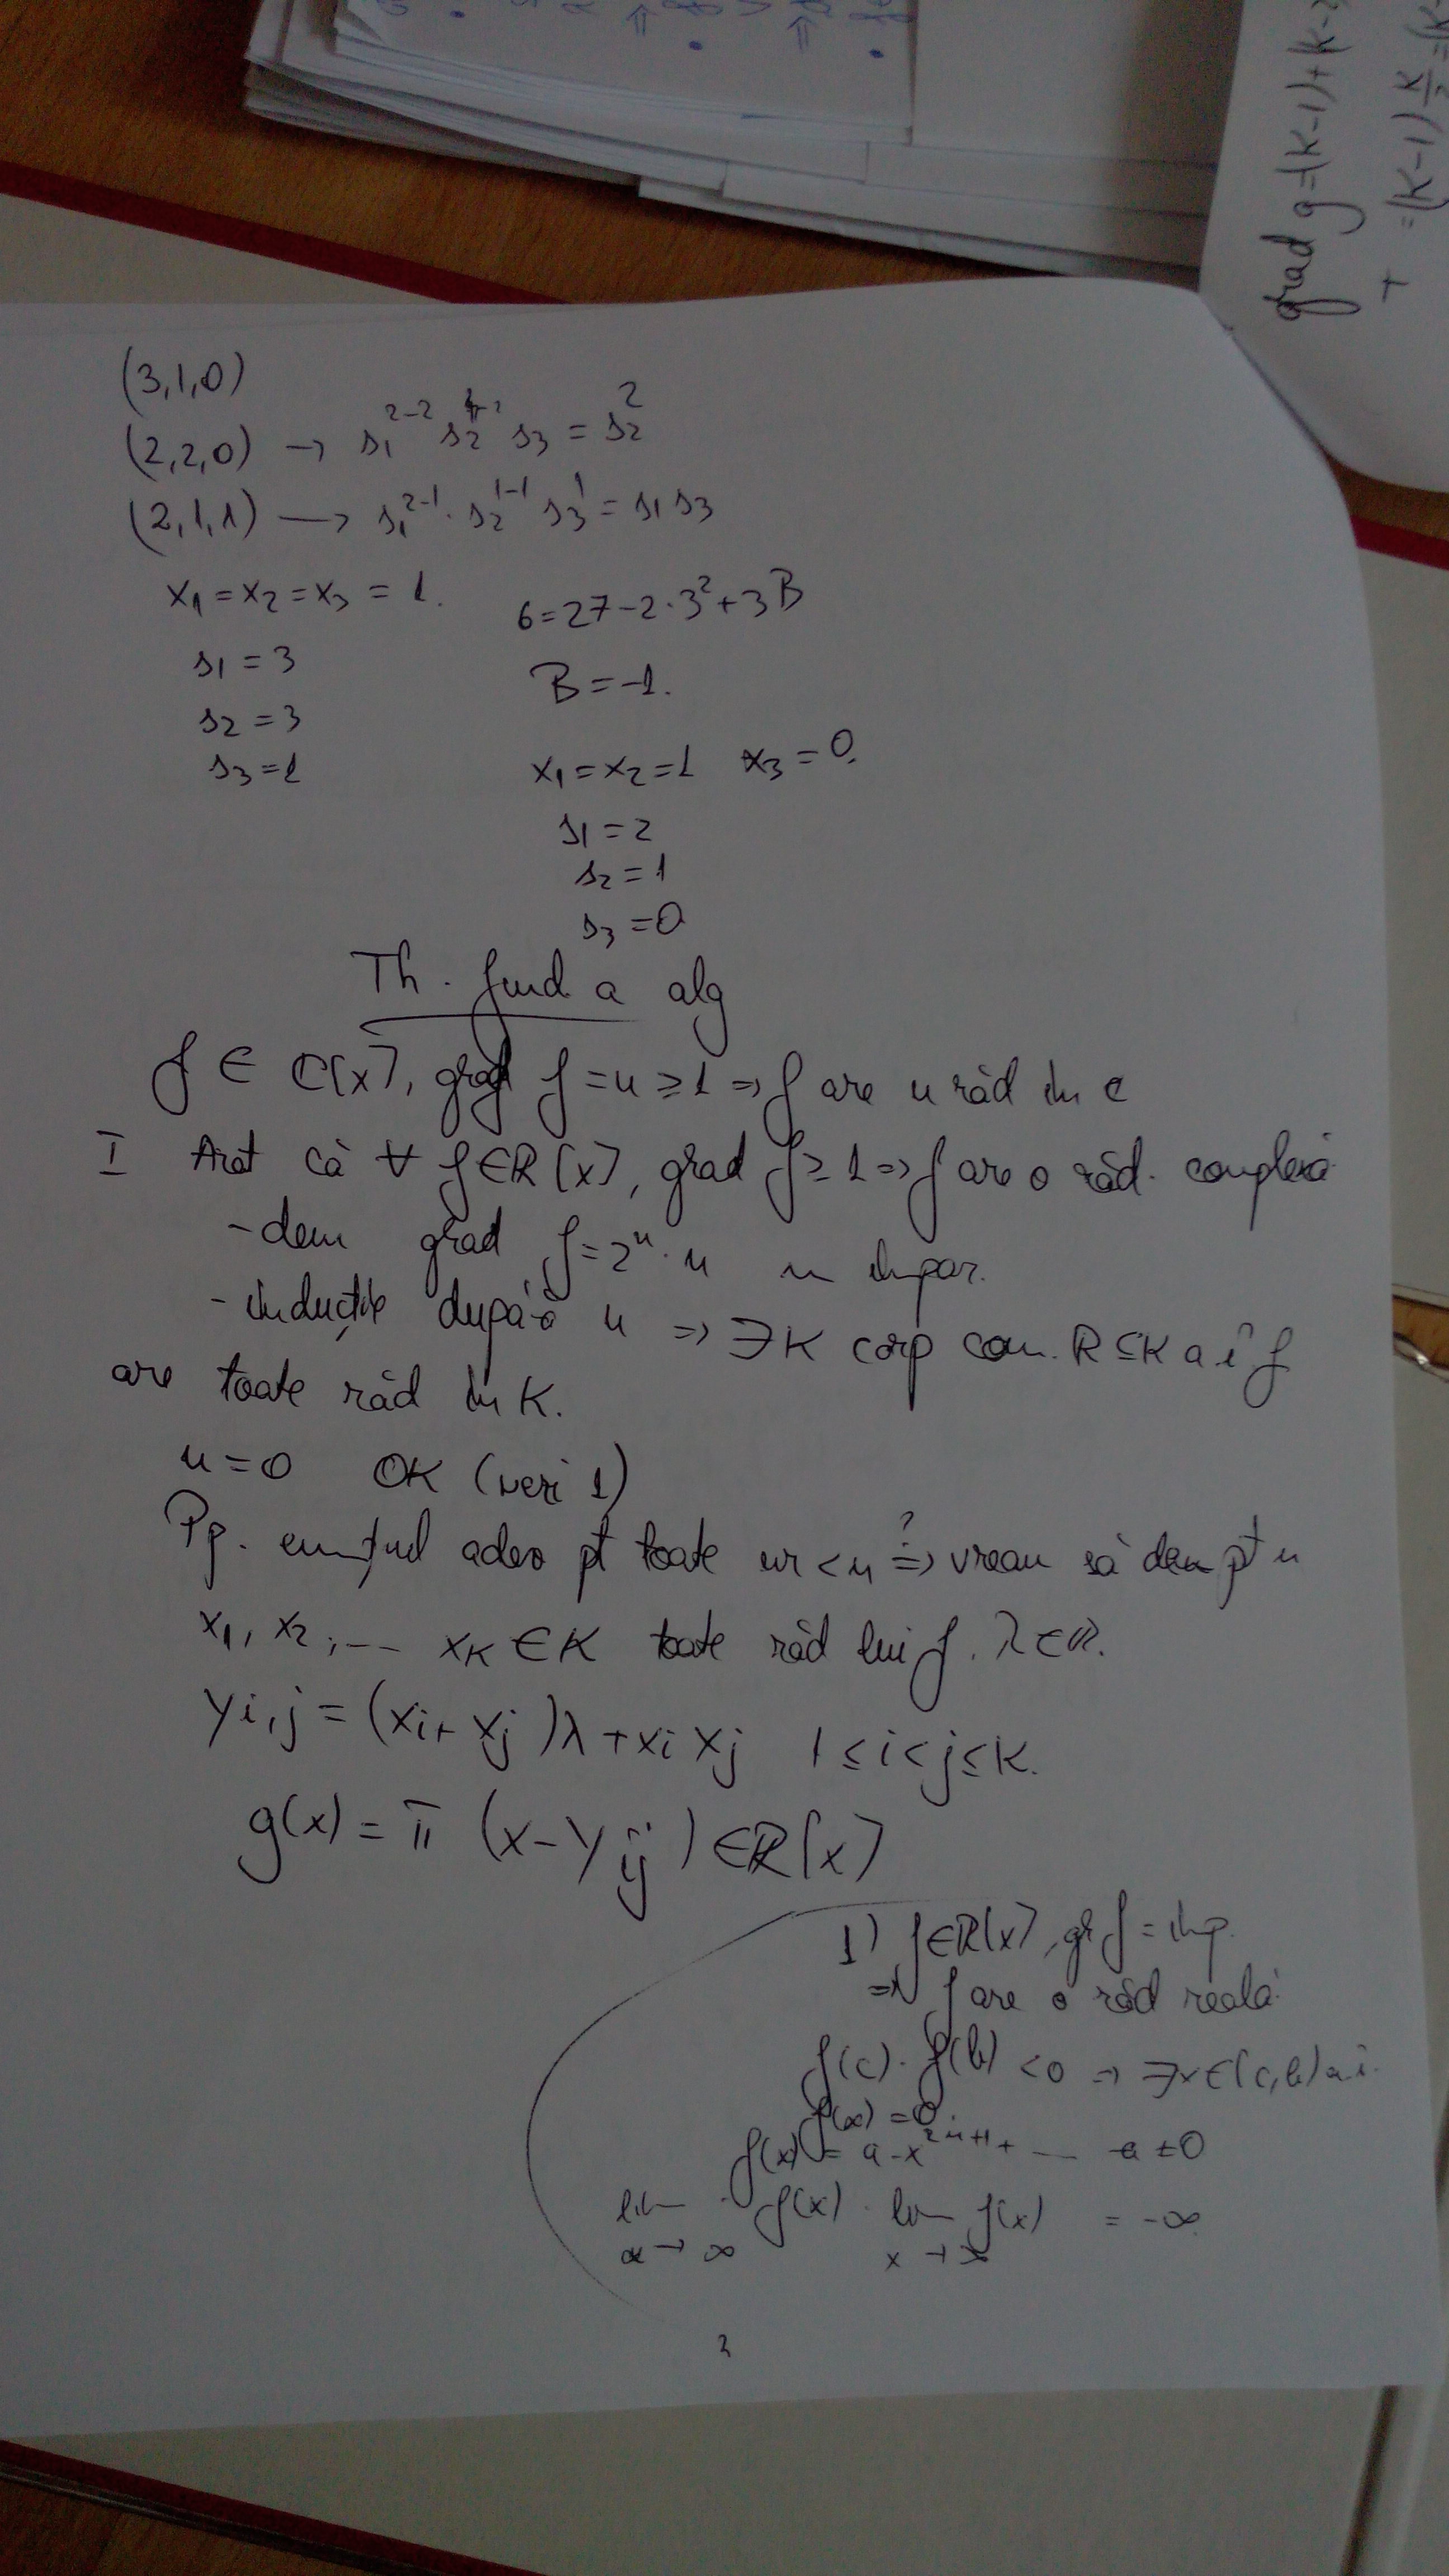 (3,1,0)
(2,2,0) → s₁²⁻² s₂ s₃ = s₂²
(2,1,1) → s₁²⁻¹ · s₂¹⁻¹ s₃¹ = s₁ s₃
x₁ = x₂ = x₃ = 1.
6 = 27 - 2·3² + 3B
s₁ = 3
B = -1.
s₂ = 3
s₃ = 1
x₁ = x₂ = 1 x₃ = 0.
s₁ = 2
s₂ = 1
s₃ = 0
Th. fund a alg
f ∈ C[x], grad f = n ≥ 1 ⇒ f are n răd în C
I Arăt că ∀ f ∈ R[x], grad f ≥ 1 ⇒ f are o răd. complexă
- dem grad f = 2ⁿ · m m impar.
- inducție după n ⇒ ∃ K corp com. R ⊆ K a î f
are toate răd în K.
n = 0 OK (vezi 1)
Pp. enunțul adev pt toate nr < n ⇒? vreau să dem pt n
x₁, x₂, ... x_K ∈ K toate răd lui f. λ ∈ R.
y i,j = (xi + xj)λ + xi xj 1 ≤ i < j ≤ K.
g(x) = π (x - y ij) ∈ R[x]
1) f ∈ R[x], gr f = imp.
⇒ f are o răd reală
f(c) · f(b) < 0 ⇒ ∃ x ∈ (c,b) a.i.
f(x) = 0.
f(x) = a · x²ⁿ⁺¹ + ... a ≠ 0
lim f(x) · lim f(x) = -∞
x → ∞ x →
grad g = (K-1) + (K-
= (K-1) K/2 = (K-